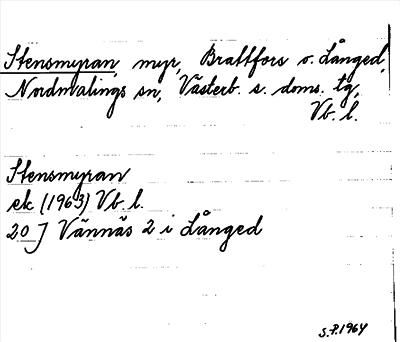 Stensmyran, myr, Brattfors o. Långed,
Nordmalings sn, Västerb. s. doms. tg,
Vb. l.
Stensmyran
ek (1963) Vb. l.
20 J Vännäs 2 i Långed
S.P. 1964